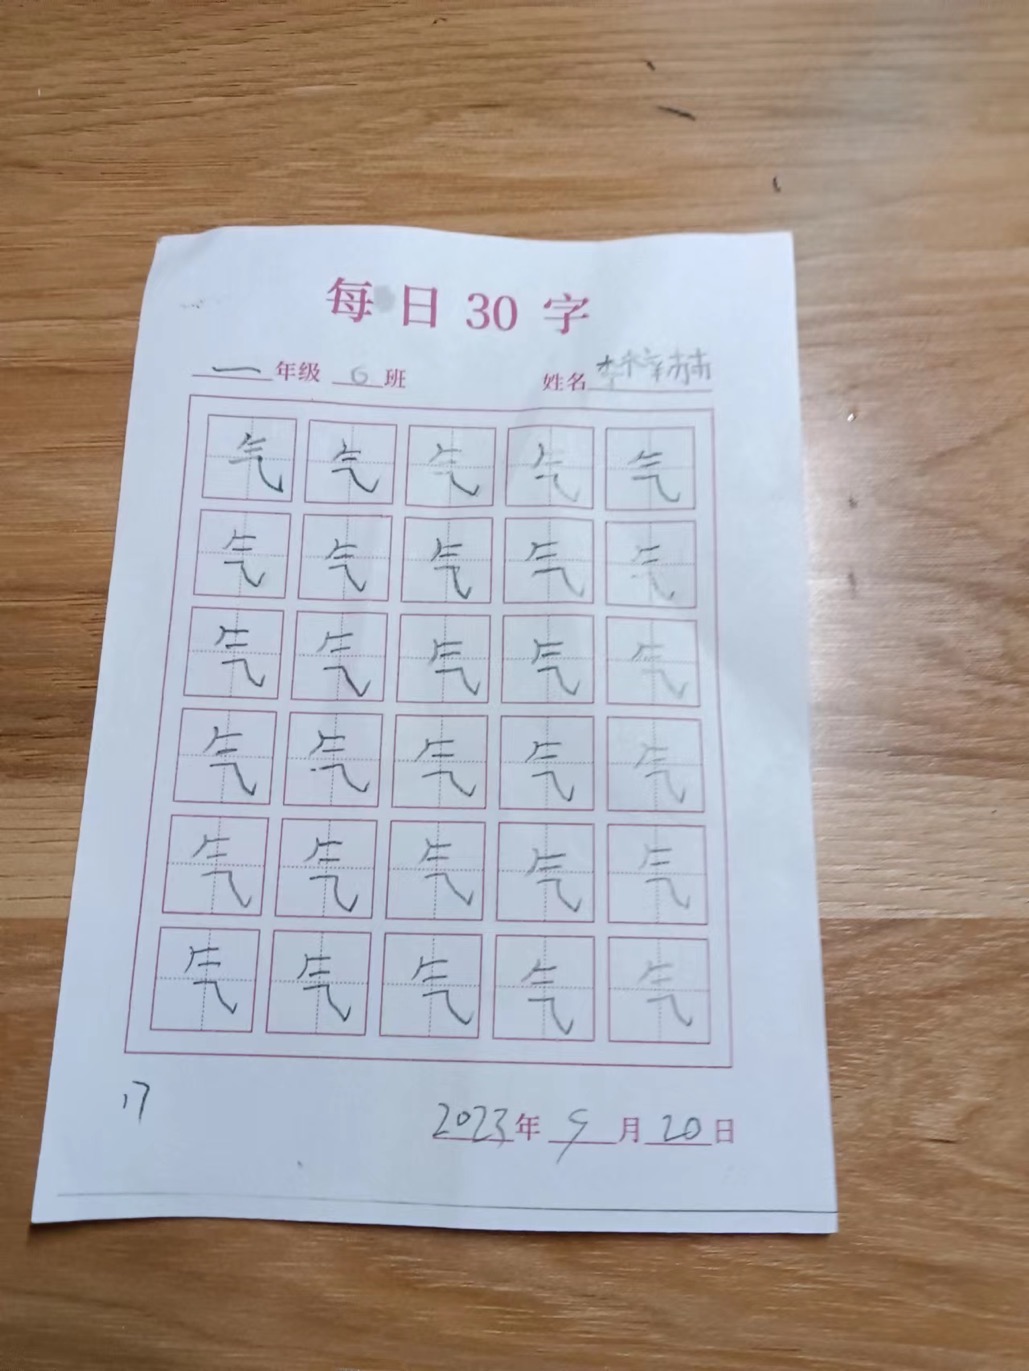 每日30字
一年级 6班 姓名
气 气 气 气 气
气 气 气 气 气
气 气 气 气 气
气 气 气 气 气
气 气 气 气 气
气 气 气 气 气
17
2023年 9月20日